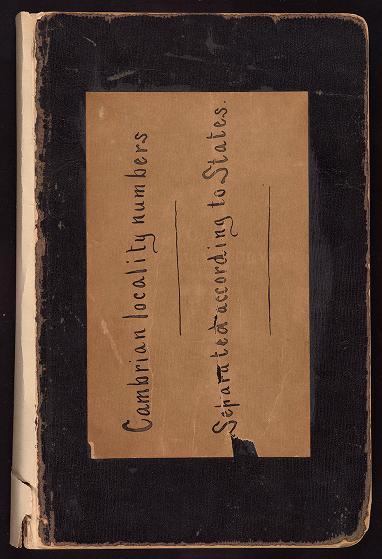 Cambrian locality numbers
Separated according to States.